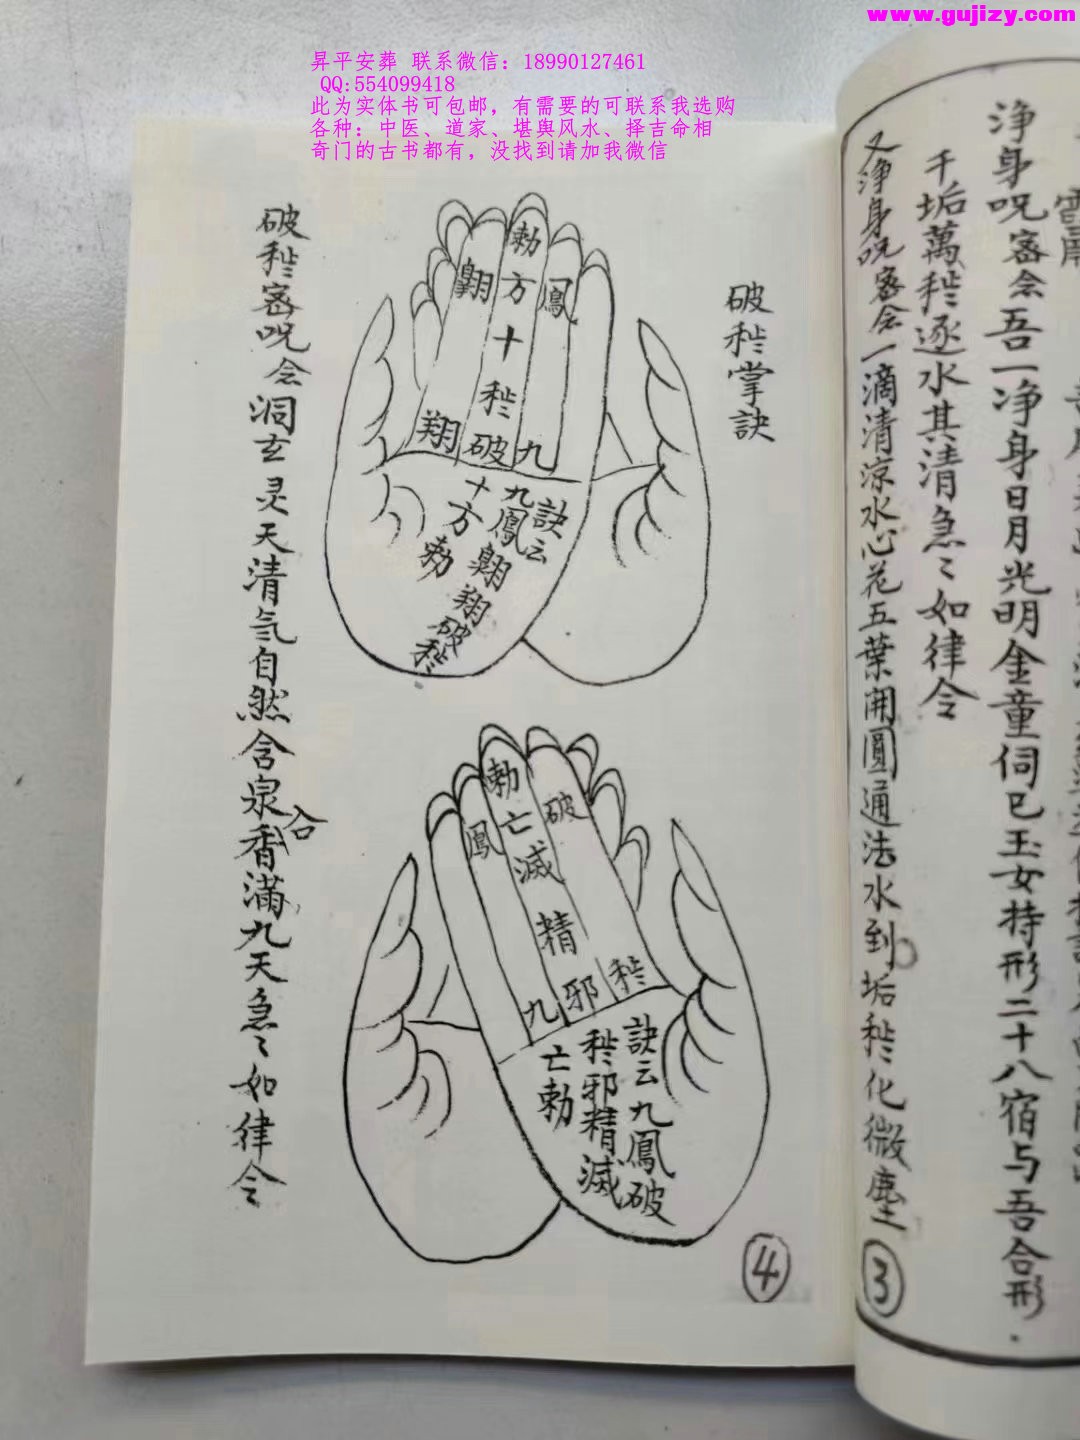 www.gujizy.com
昇平安葬 联系微信：18990127461
QQ:554099418
此为实体书可包邮，有需要的可联系我选购
各种：中医、道家、堪舆风水、择吉命相
奇门的古书都有，没找到请加我微信
净身咒密念吾一净身日月光明金童伺巳玉女持形二十八宿与吾合形.
千垢萬秽逐水其清急〻如律令
又净身咒密念一滴清凉水心花五葉開圓通法水到垢秽化微塵
③
破秽掌訣
勅
方
十
秽
破
鳳
九
翺
翔
訣云
九鳳翺翔破秽
十方勅
勅
亡
滅
精
邪
破
秽
鳳
九
訣云九鳳破
秽邪精滅
亡勅
④
破秽密咒念洞玄灵天清氕自然含泉香滿九天急〻如律令
合